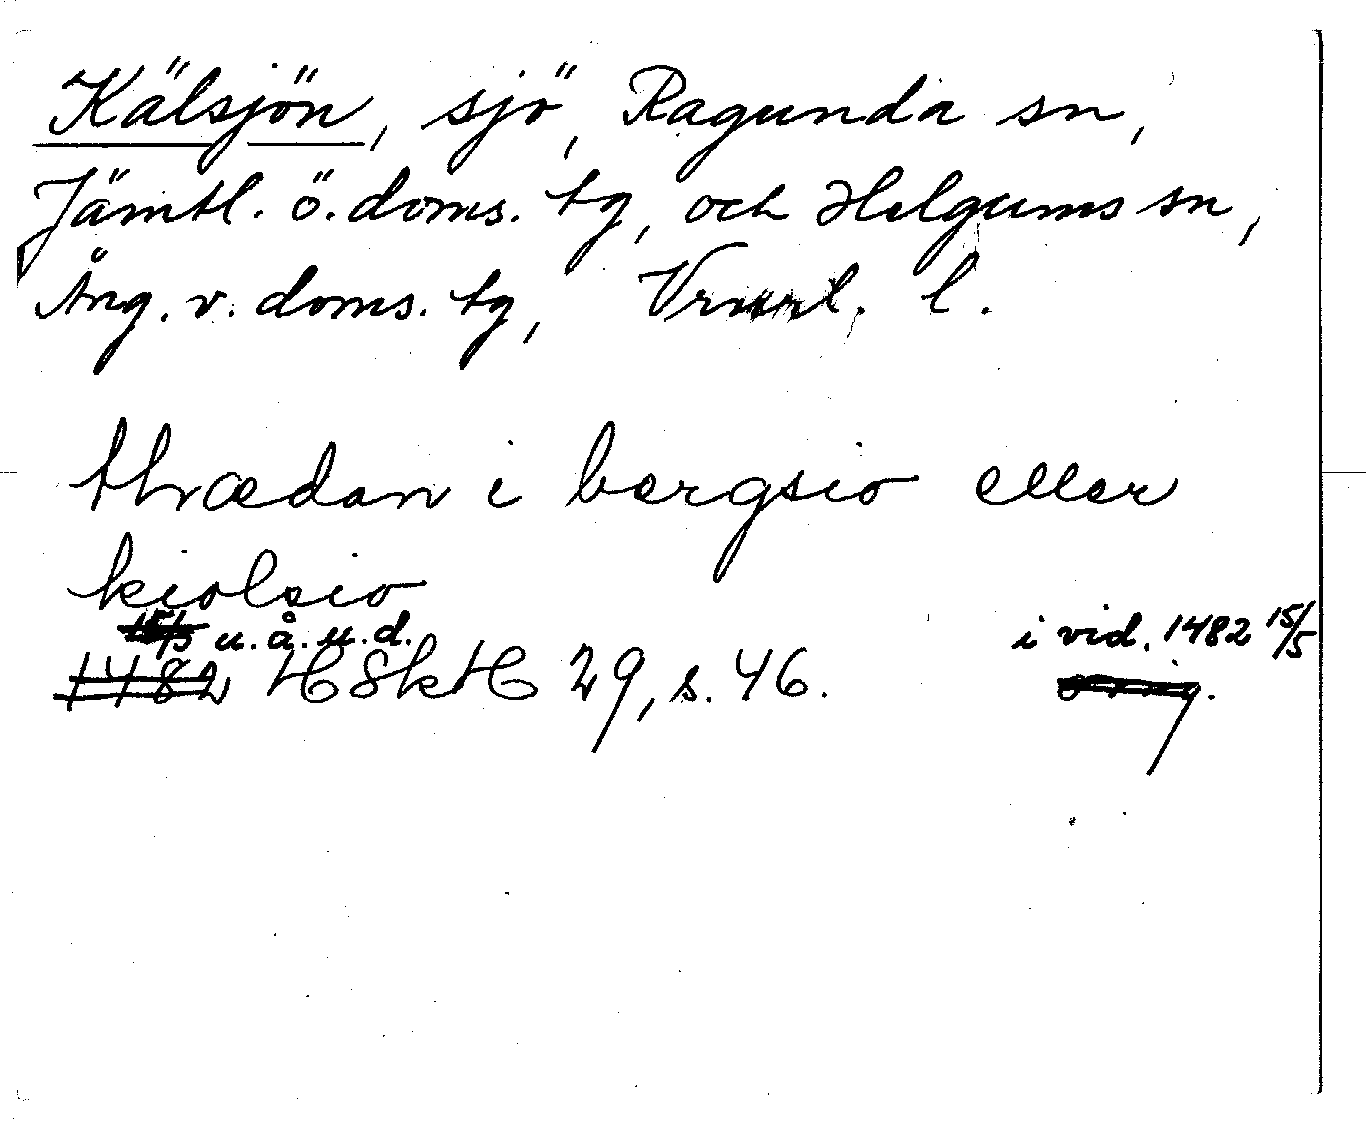 Kälsjön, sjö, Ragunda sn,
Jämtl. ö. doms. tg, och Helgums sn,
Ång. v. doms. tg, Vrnorl. l.
thrædan i bergsio eller
kiolsio
15/5 u. å. u. d. i vid. 1482 15/5
1482 HSkH 29, s. 46. orig.